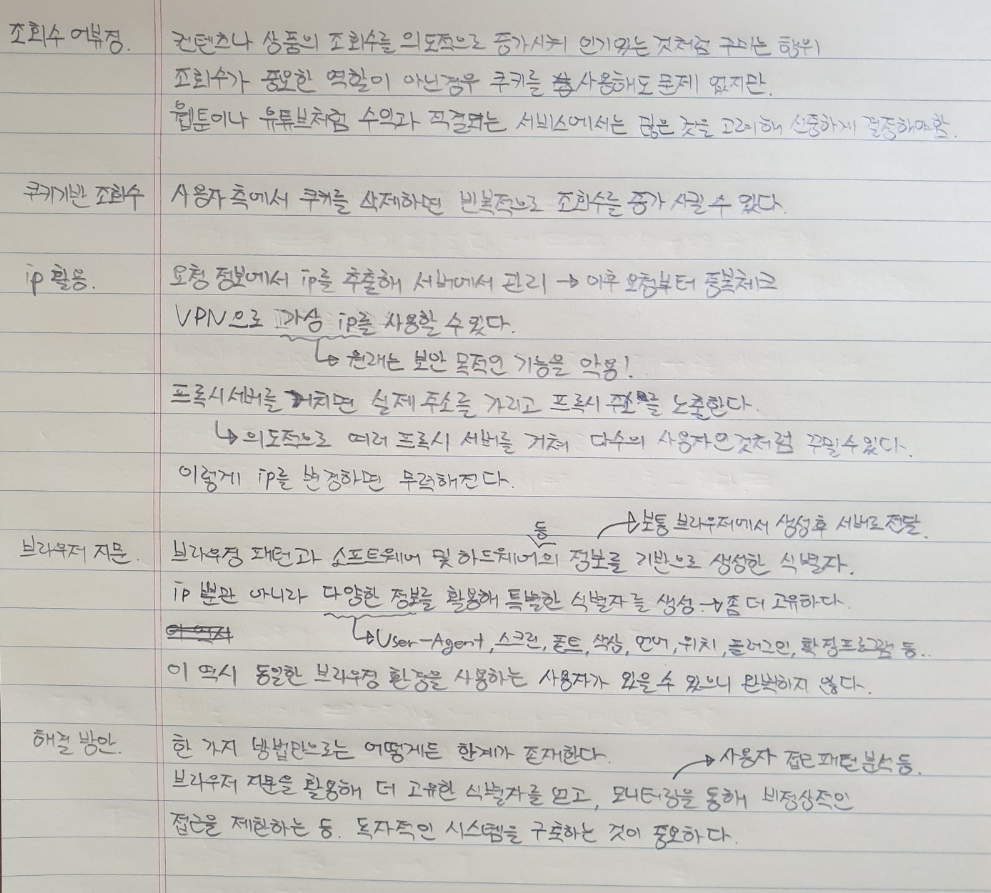 조회수 어뷰징. 컨텐츠나 상품의 조회수를 의도적으로 증가시켜 인기있는 것처럼 꾸미는 행위
조회수가 중요한 역할이 아닌경우 쿠키를 사용해도 문제 없지만.
웹툰이나 유튜브처럼 수익과 직결되는 서비스에서는 많은 것을 고려해 신중하게 결정해야함.
쿠키기반 조회수 사용자 측에서 쿠키를 삭제하면 반복적으로 조회수를 증가 시킬 수 있다.
ip 활용. 요청 정보에서 ip를 추출해 서버에서 관리 → 이후 요청부터 중복체크
VPN으로 가상 ip를 사용할 수 있다.
↳ 원래는 보안 목적인 기능을 악용!
프록시서버를 거치면 실제 주소를 가리고 프록시 주소를 노출한다.
↳ 의도적으로 여러 프록시 서버를 거쳐 다수의 사용자인것처럼 꾸밀수있다.
이렇게 ip를 변경하면 무력해진다.
등 → 보통 브라우저에서 생성후 서버로 전달.
브라우저 지문. 브라우징 패턴과 소프트웨어 및 하드웨어의 정보를 기반으로 생성한 식별자.
ip 뿐만 아니라 다양한 정보를 활용해 특별한 식별자를 생성. → 좀 더 고유하다.
↳ User-Agent, 스크린, 폰트, 색상, 언어, 위치, 플러그인, 확장프로그램 등..
이 역시 동일한 브라우징 환경을 사용하는 사용자가 있을 수 있으니 완벽하지 않다.
해결 방안. 한 가지 방법만으로는 어떻게든 한계가 존재한다.
→ 사용자 접근패턴분석 등.
브라우저 지문을 활용해 더 고유한 식별자를 얻고, 모니터링을 통해 비정상적인
접근을 제한하는 등. 독자적인 시스템을 구축하는 것이 중요하다.